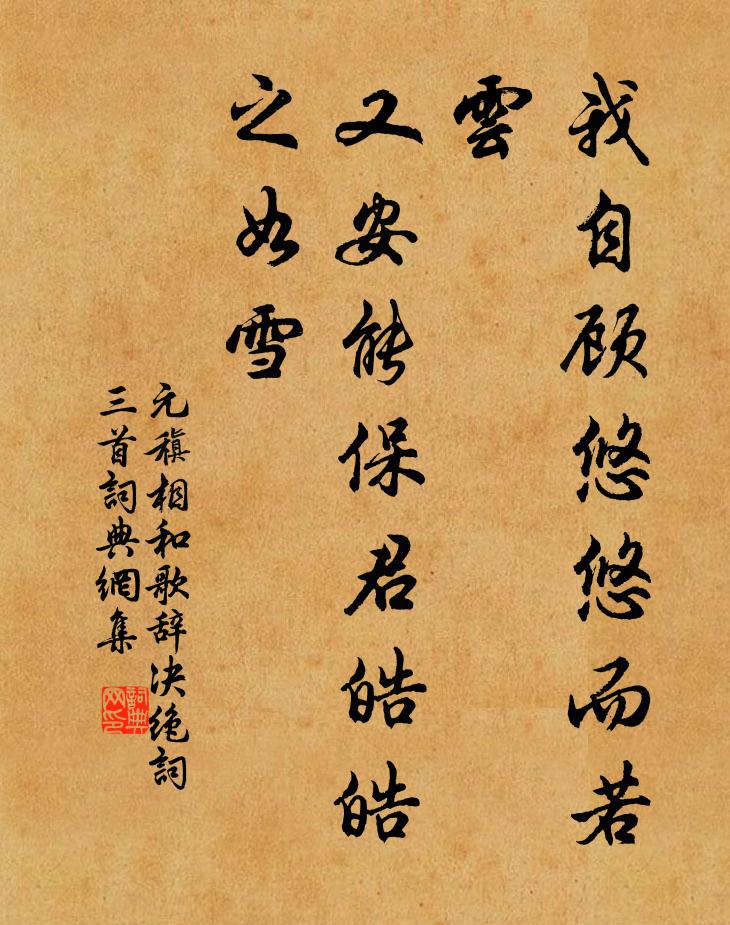 我自顧悠悠而若
雲
又安能保君皓皓
之如雪
元稹相和歌辞决绝詞
三首詞典網集
詞典網印